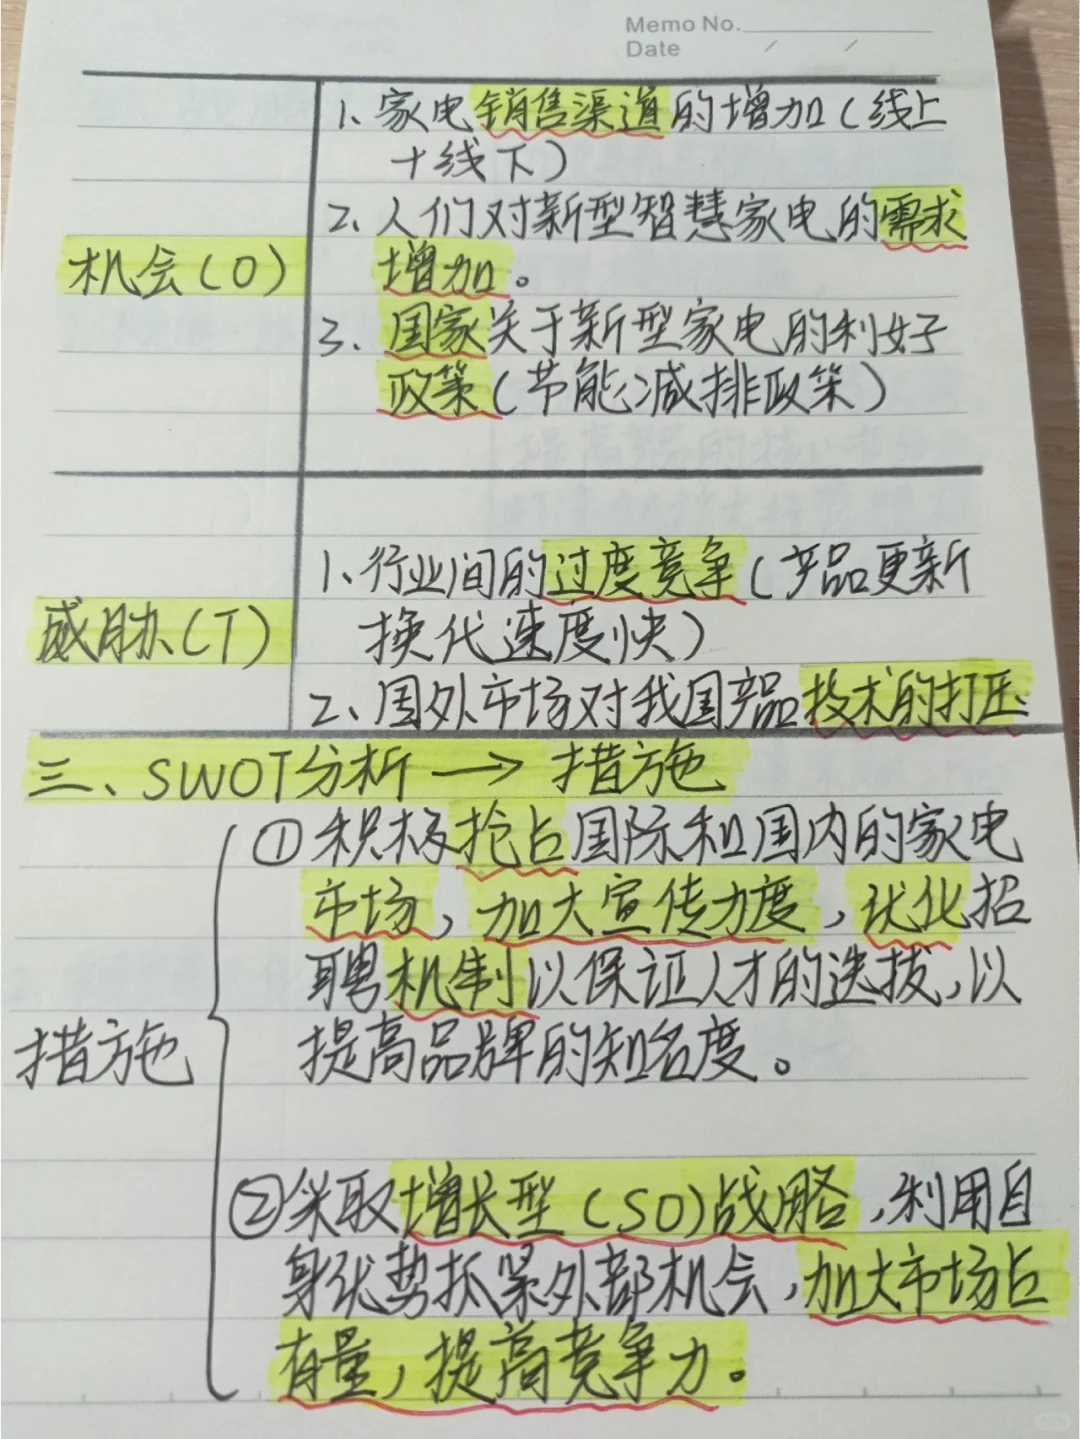 Memo No.
Date / /
1、家电销售渠道的增加(线上
+线下)
2、人们对新型智慧家电的需求
机会(O)
增加。
3、国家关于新型家电的利好
政策(节能减排政策)
1、行业间的过度竞争(产品更新
威胁(T)
换代速度快)
2、国外市场对我国产品技术的打压
三、SWOT分析→措施
①积极抢占国际和国内的家电
市场,加大宣传力度,优化招
聘机制以保证人才的选拔,以
措施
提高品牌的知名度。
②采取增长型(SO)战略,利用自
身优势抓紧外部机会,加大市场占
有量,提高竞争力。